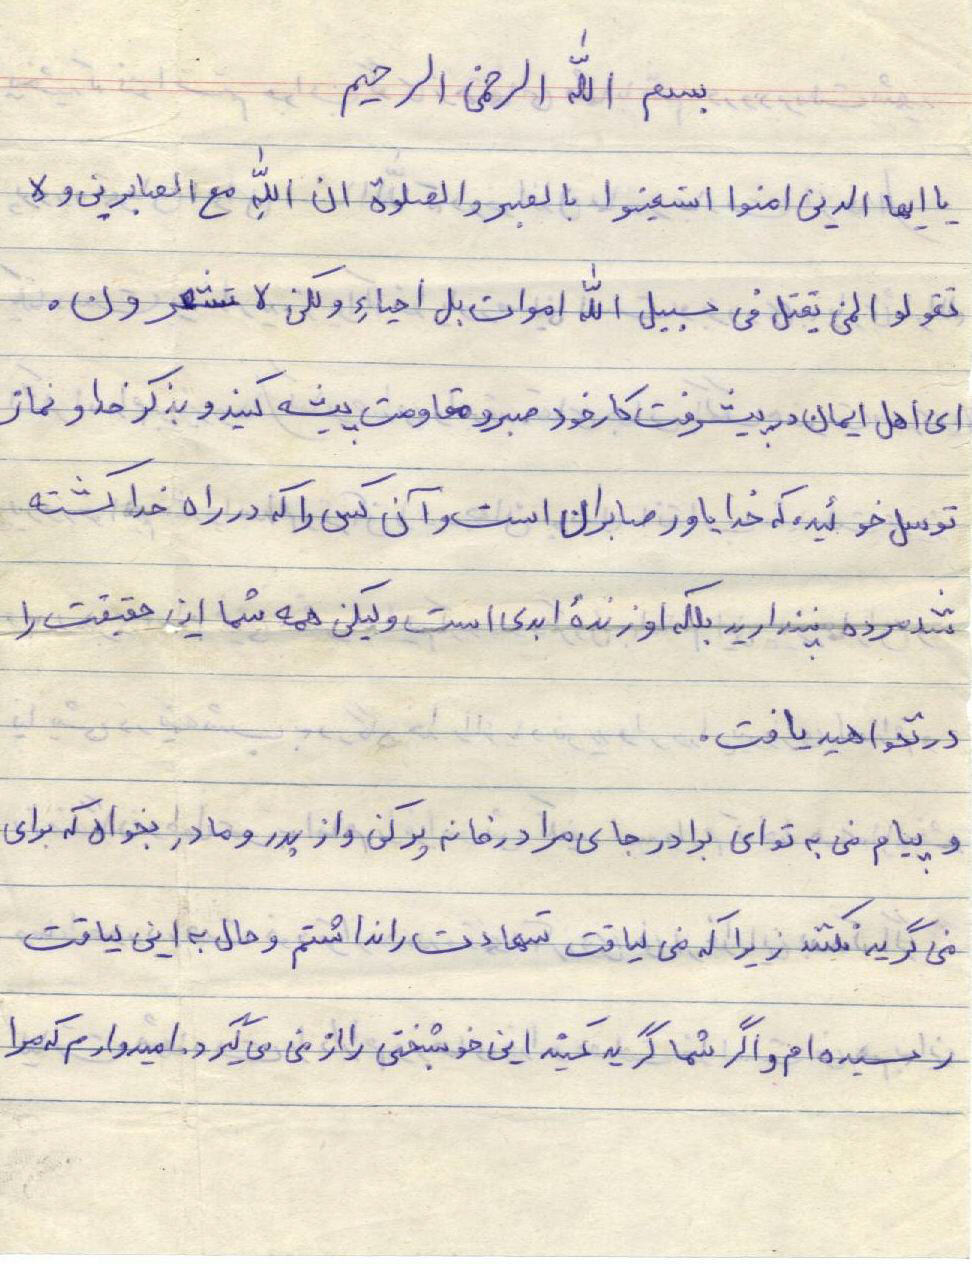 بسم الله الرحمن الرحیم
یا ایها الدین امنوا استعینوا بالصبر والصلوة ان الله مع الصابرین و لا
تقولو المن یقتل فی سبیل الله اموات بل احیاءِ ولکن لا تشعرون .
ای اهل ایمان در پیشرفت کار خود صبر و مقاومت پیشه کیند و بذکر خدا و نماز
توسل خوئید که خدا یاور صابران است و آن کسی را که در راه خدا کشته
شد مرده پندارید بلکه او زندهٔ ابدی است ولیکن همه شما این حقیقت را
در نخواهید یافت .
و پیام من به تو ای برادر جای مرا در خانه پر کن و از پدر و مادر بخواه که برای
من گریه نکنند زیرا که من لیاقت شهادت را نداشتم و حال به این لیاقت
رسیده ام و اگر شما گریه کنید این خوشبختی را از من می گیرد . امیدوارم که مرا